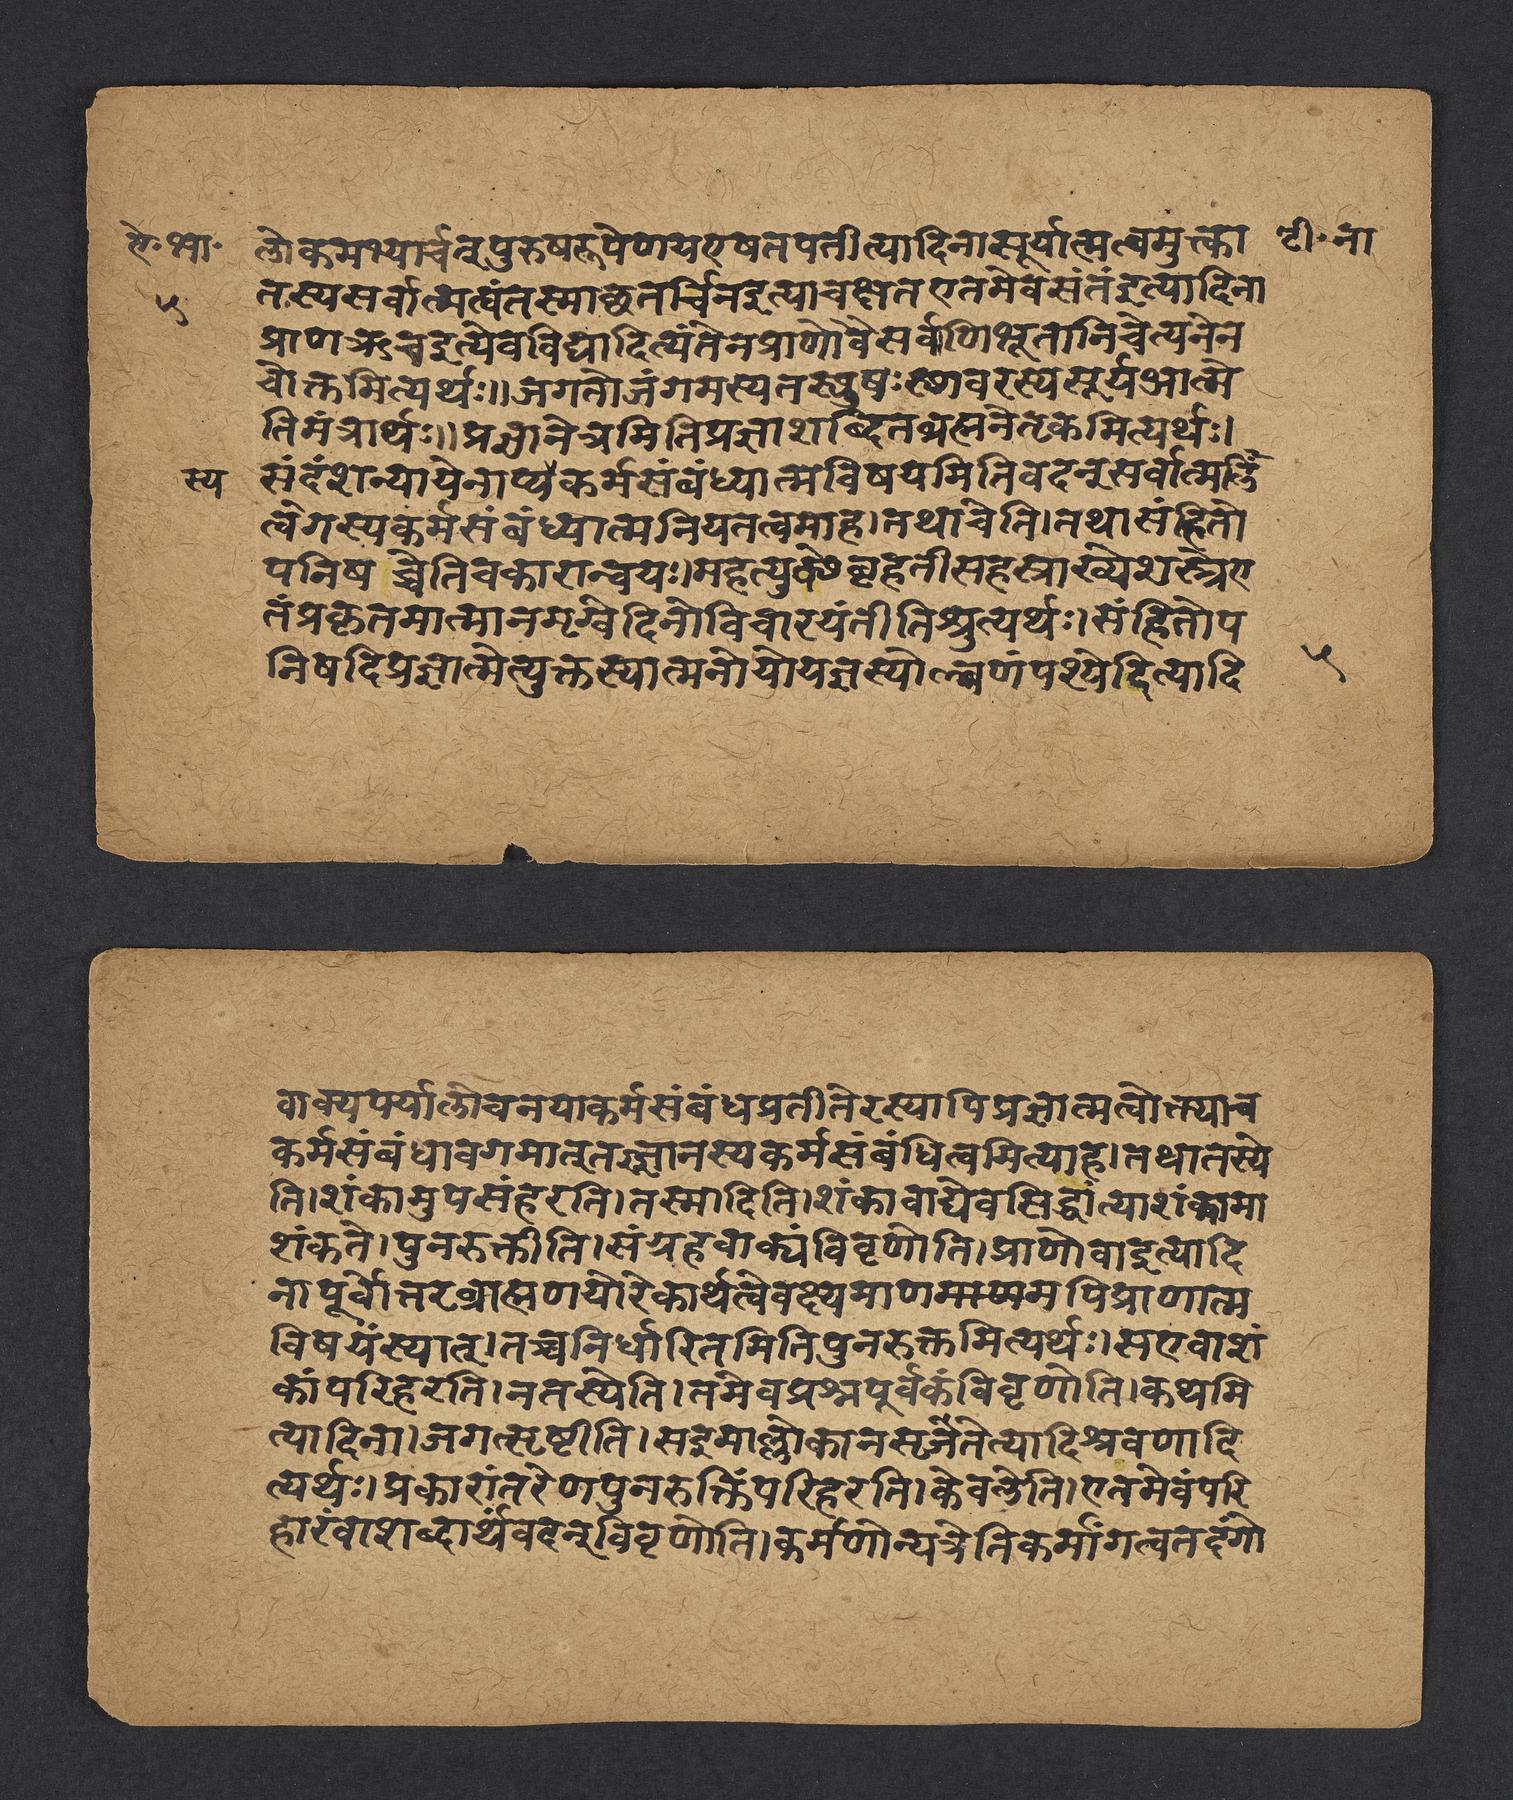 ऐ·भा· लोकमभ्यार्चत्पुरुषरूपेणयएषतपतीत्यादिनासूर्यात्मत्वमुक्त्का टी·ना
५ तस्यसर्वात्मत्वंतस्माच्छतर्चिनइत्याचक्षतएतमेवसंतंइत्यादिना
प्राणऋचइत्येवविद्यादित्यंतेनप्राणोवैसर्वाणिभूतानिचेत्यनेन
चोक्तमित्यर्थः॥जगतोजंगमस्यतस्थुषःस्थावरस्यसूर्यआत्मे
तिमंत्रार्थः॥प्रज्ञानेत्रमितिप्रज्ञाशब्दितब्रह्मनेतृकमित्यर्थः।
स्य संदंशन्यायेनाप्यकर्मसंबंध्यात्मविषयमितिवदन्सर्वात्म
त्वेगस्यकर्मसंबंध्यात्मनियतत्वमाह।तथाचेति।तथासंहितो
पनिष च्चेतिचकारान्वयः।महत्युक्थेबृहतीसहस्राख्येशस्त्रेए
तंप्रकृतमात्मानमृग्वेदिनोविचारयंतीतिश्रुत्यर्थः।संहितोप
निषदिप्रज्ञात्मेत्युक्तस्यात्मनोयोयज्ञस्योल्बणंपश्येदित्यादि ५
वाक्यपर्यालोचनयाकर्मसंबंधप्रतीतेरस्यापिप्रज्ञात्मत्वोक्त्याच
कर्मसंबंधावगमात्तज्ज्ञानस्यकर्मसंबंधित्वमित्याह।तथातस्ये
ति।शंकामुपसंहरति।तस्मादिति।शंकावाद्येवसिद्धांत्याशंकामा
शंकते।पुनरुक्तीति।संग्रहवाक्यंविवृणोति।प्राणोवाइत्यादि
नापूर्वोत्तरब्राह्मणयोरेकार्थत्वेवक्ष्यमाणमपिप्राणात्म
विषयंस्यात्।तच्चनिर्धारितमितिपुनरुक्तमित्यर्थः।सएवाशं
कांपरिहरति।नतस्येति।तमेवप्रश्नपूर्वकंविवृणोति।कथमि
त्यादिना।जगत्सृष्टीति।सइमाल्लोकानसृजतेत्यादिश्रवणादि
त्यर्थः।प्रकारांतरेणपुनरुक्तिंपरिहरति।केवलेति।एतमेवंपरि
हारंवाशब्दार्थंवदन्विवृणोति।कर्मणोन्यत्रेतिकर्मांगत्वतदंगो